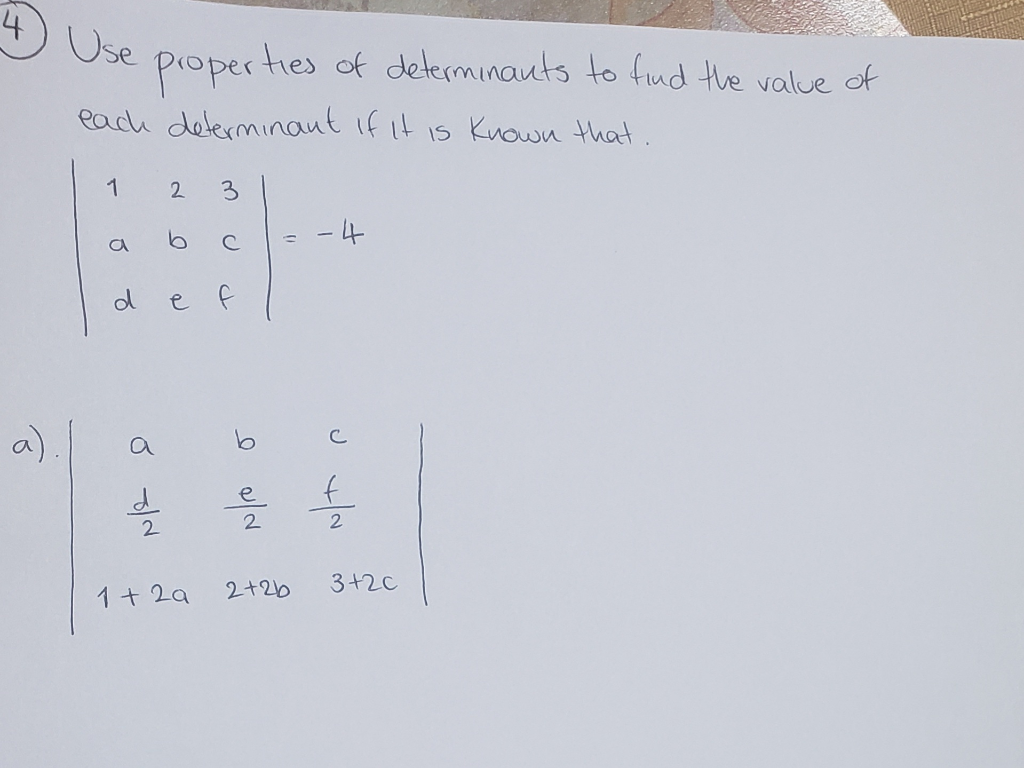 4 Use properties of determinants to find the value of
each determinant if it is known that.
| 1 2 3 |
| a b c | = -4
| d e f |
a). | a b c |
| d/2 e/2 f/2 |
| 1+2a 2+2b 3+2c |